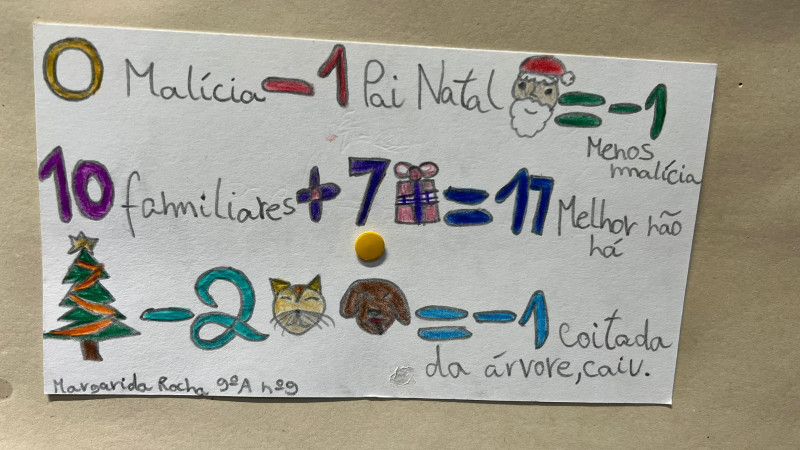 0 Malícia - 1 Pai Natal = -1
Menos
malícia
10 familiares + 7 = 17
Melhor não
há
- 2 = -1 Coitada
da árvore, caiu.
Margarida Rocha 9ºA nº9